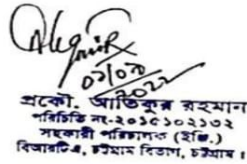 ০১/০১/২০২২
প্রকৌ. আতিকুর রহমান
পরিচিতি নং-২০১৫১০২১৩২
সহকারী পরিচালক (ইঞ্জি.)
বিআরটিএ, চট্টগ্রাম বিভাগ, চট্টগ্রাম।